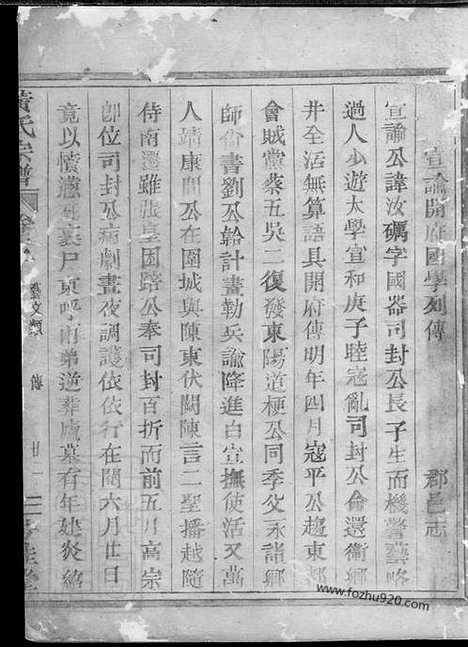 宣諭開府國學列傳
郡邑志
宣諭公諱汝礪字國器司封公長子生而機警藝略
過人少遊太學宣和庚子睦寇亂司封公俞還衛鄉
井全活無算語具開府傳明年四月寇平公趨東
會賊黨蔡五吳二復發東陽道梗公同季父永諸鄉
師俗書劉公韐計畫勒兵諭降進白宣撫使活又萬
人靖康間公在圍城與陳東伏闕陳言二聖播越隨
侍南還雖張皇困踣公奉司封百折而前五月高宗
卽位司封公病劇晝夜調護依依行在閱六月廿日
竟以憤懣死裹尸東呼兩弟逆葬廬墓有年建炎紹
黃氏宗譜
藝文類
傳
廿一
www.fozhu920.com